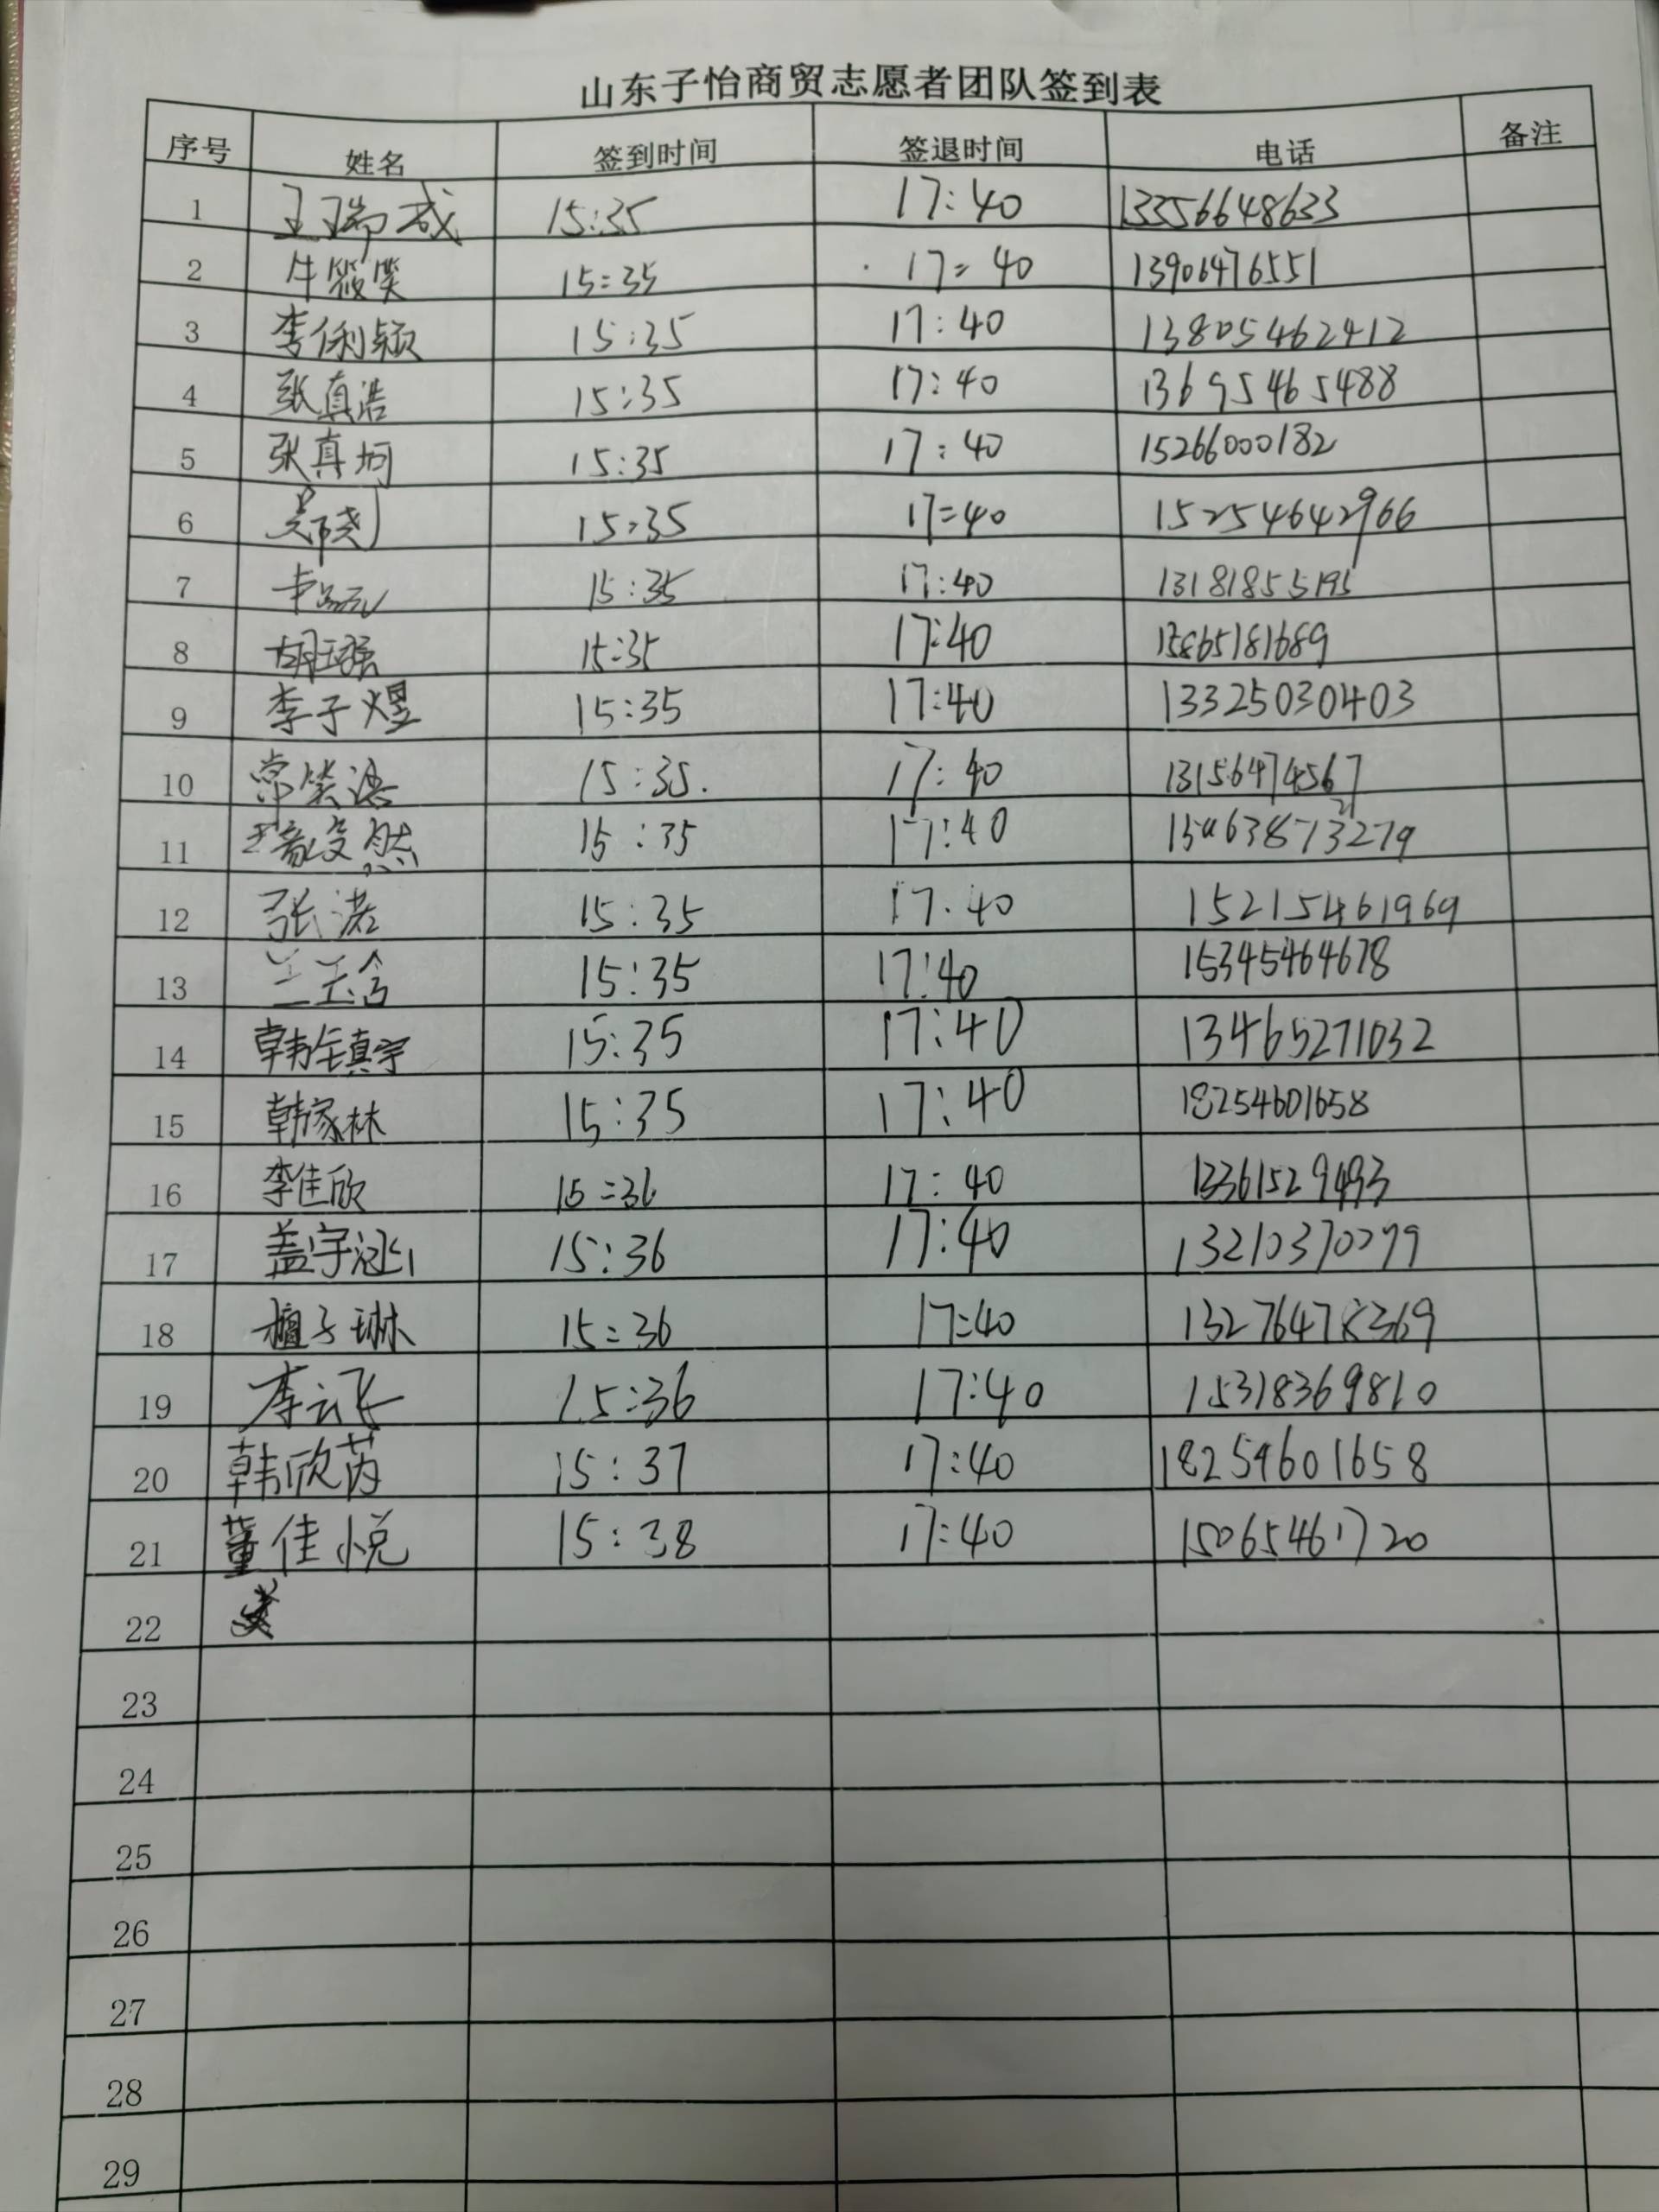 山东子怡商贸志愿者团队签到表
序号 姓名 签到时间 签退时间 电话 备注
1 王瑞成 15:35 17:40 13356648633
2 牛筱笑 15:35 17:40 13906476551
3 李俐颖 15:35 17:40 13805462412
4 张真浩 15:35 17:40 13695465488
5 张真坷 15:35 17:40 15266000182
6 15:35 17:40 15254642966
7 15:35 17:40 13181855195
8 15:35 17:40 15865181689
9 李子煜 15:35 17:40 13325030403
10 常笑语 15:35. 17:40 13156474567
11 15:35 17:40
12 张诺 15:35 17.40 15215461969
13 王玉含 15:35 17:40 15345464678
14 韩镇宇 15:35 17:40 13465271032
15 韩家林 15:35 17:40 18254601658
16 李佳欣 15:36 17:40 13361529493
17 盖宇涵 15:36 17:40 13210370299
18 子琳 15:36 17:40 13276478369
19 李云飞 15:36 17:40 15318369810
20 韩欣芮 15:37 17:40 18254601658
21 董佳悦 15:38 17:40 15065461720
22
23
24
25
26
27
28
29